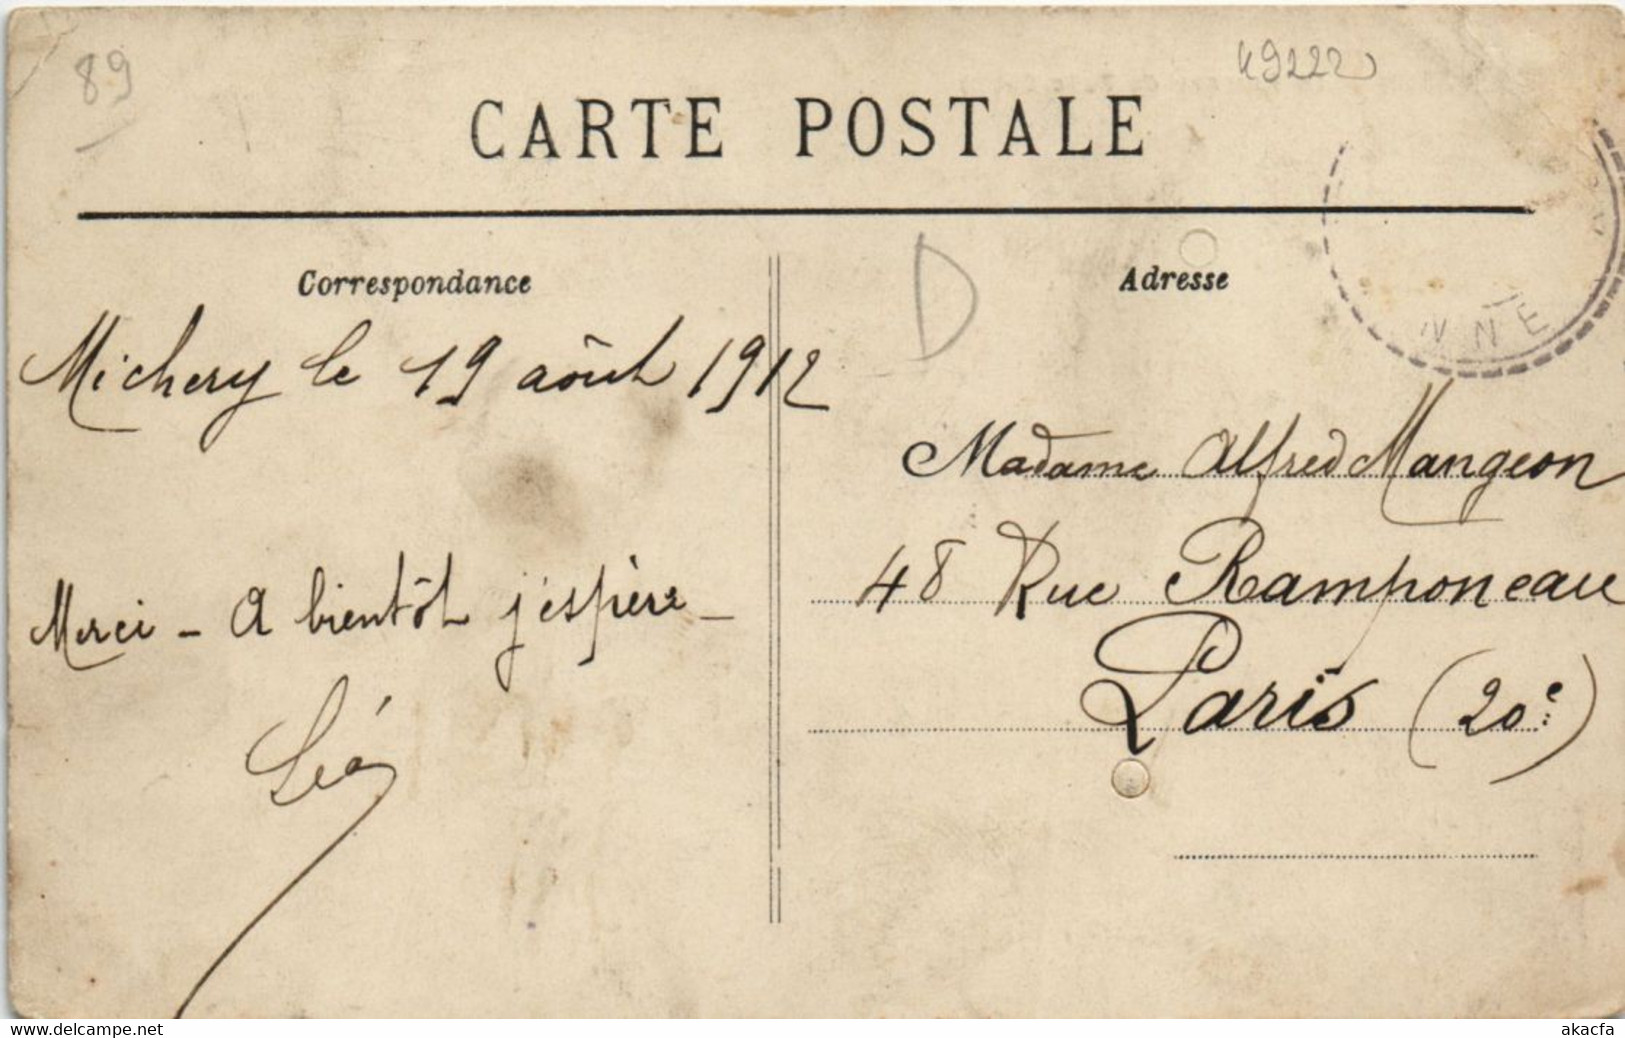 89
49222
CARTE POSTALE
Correspondance
Adresse
D
NNE
Michery le 19 août 1912
Merci - A bientôt j'espère -
Léa
Madame Alfred Mangeon
48 Rue Ramponeau
Paris (20e)
www.delcampe.net
akacfa